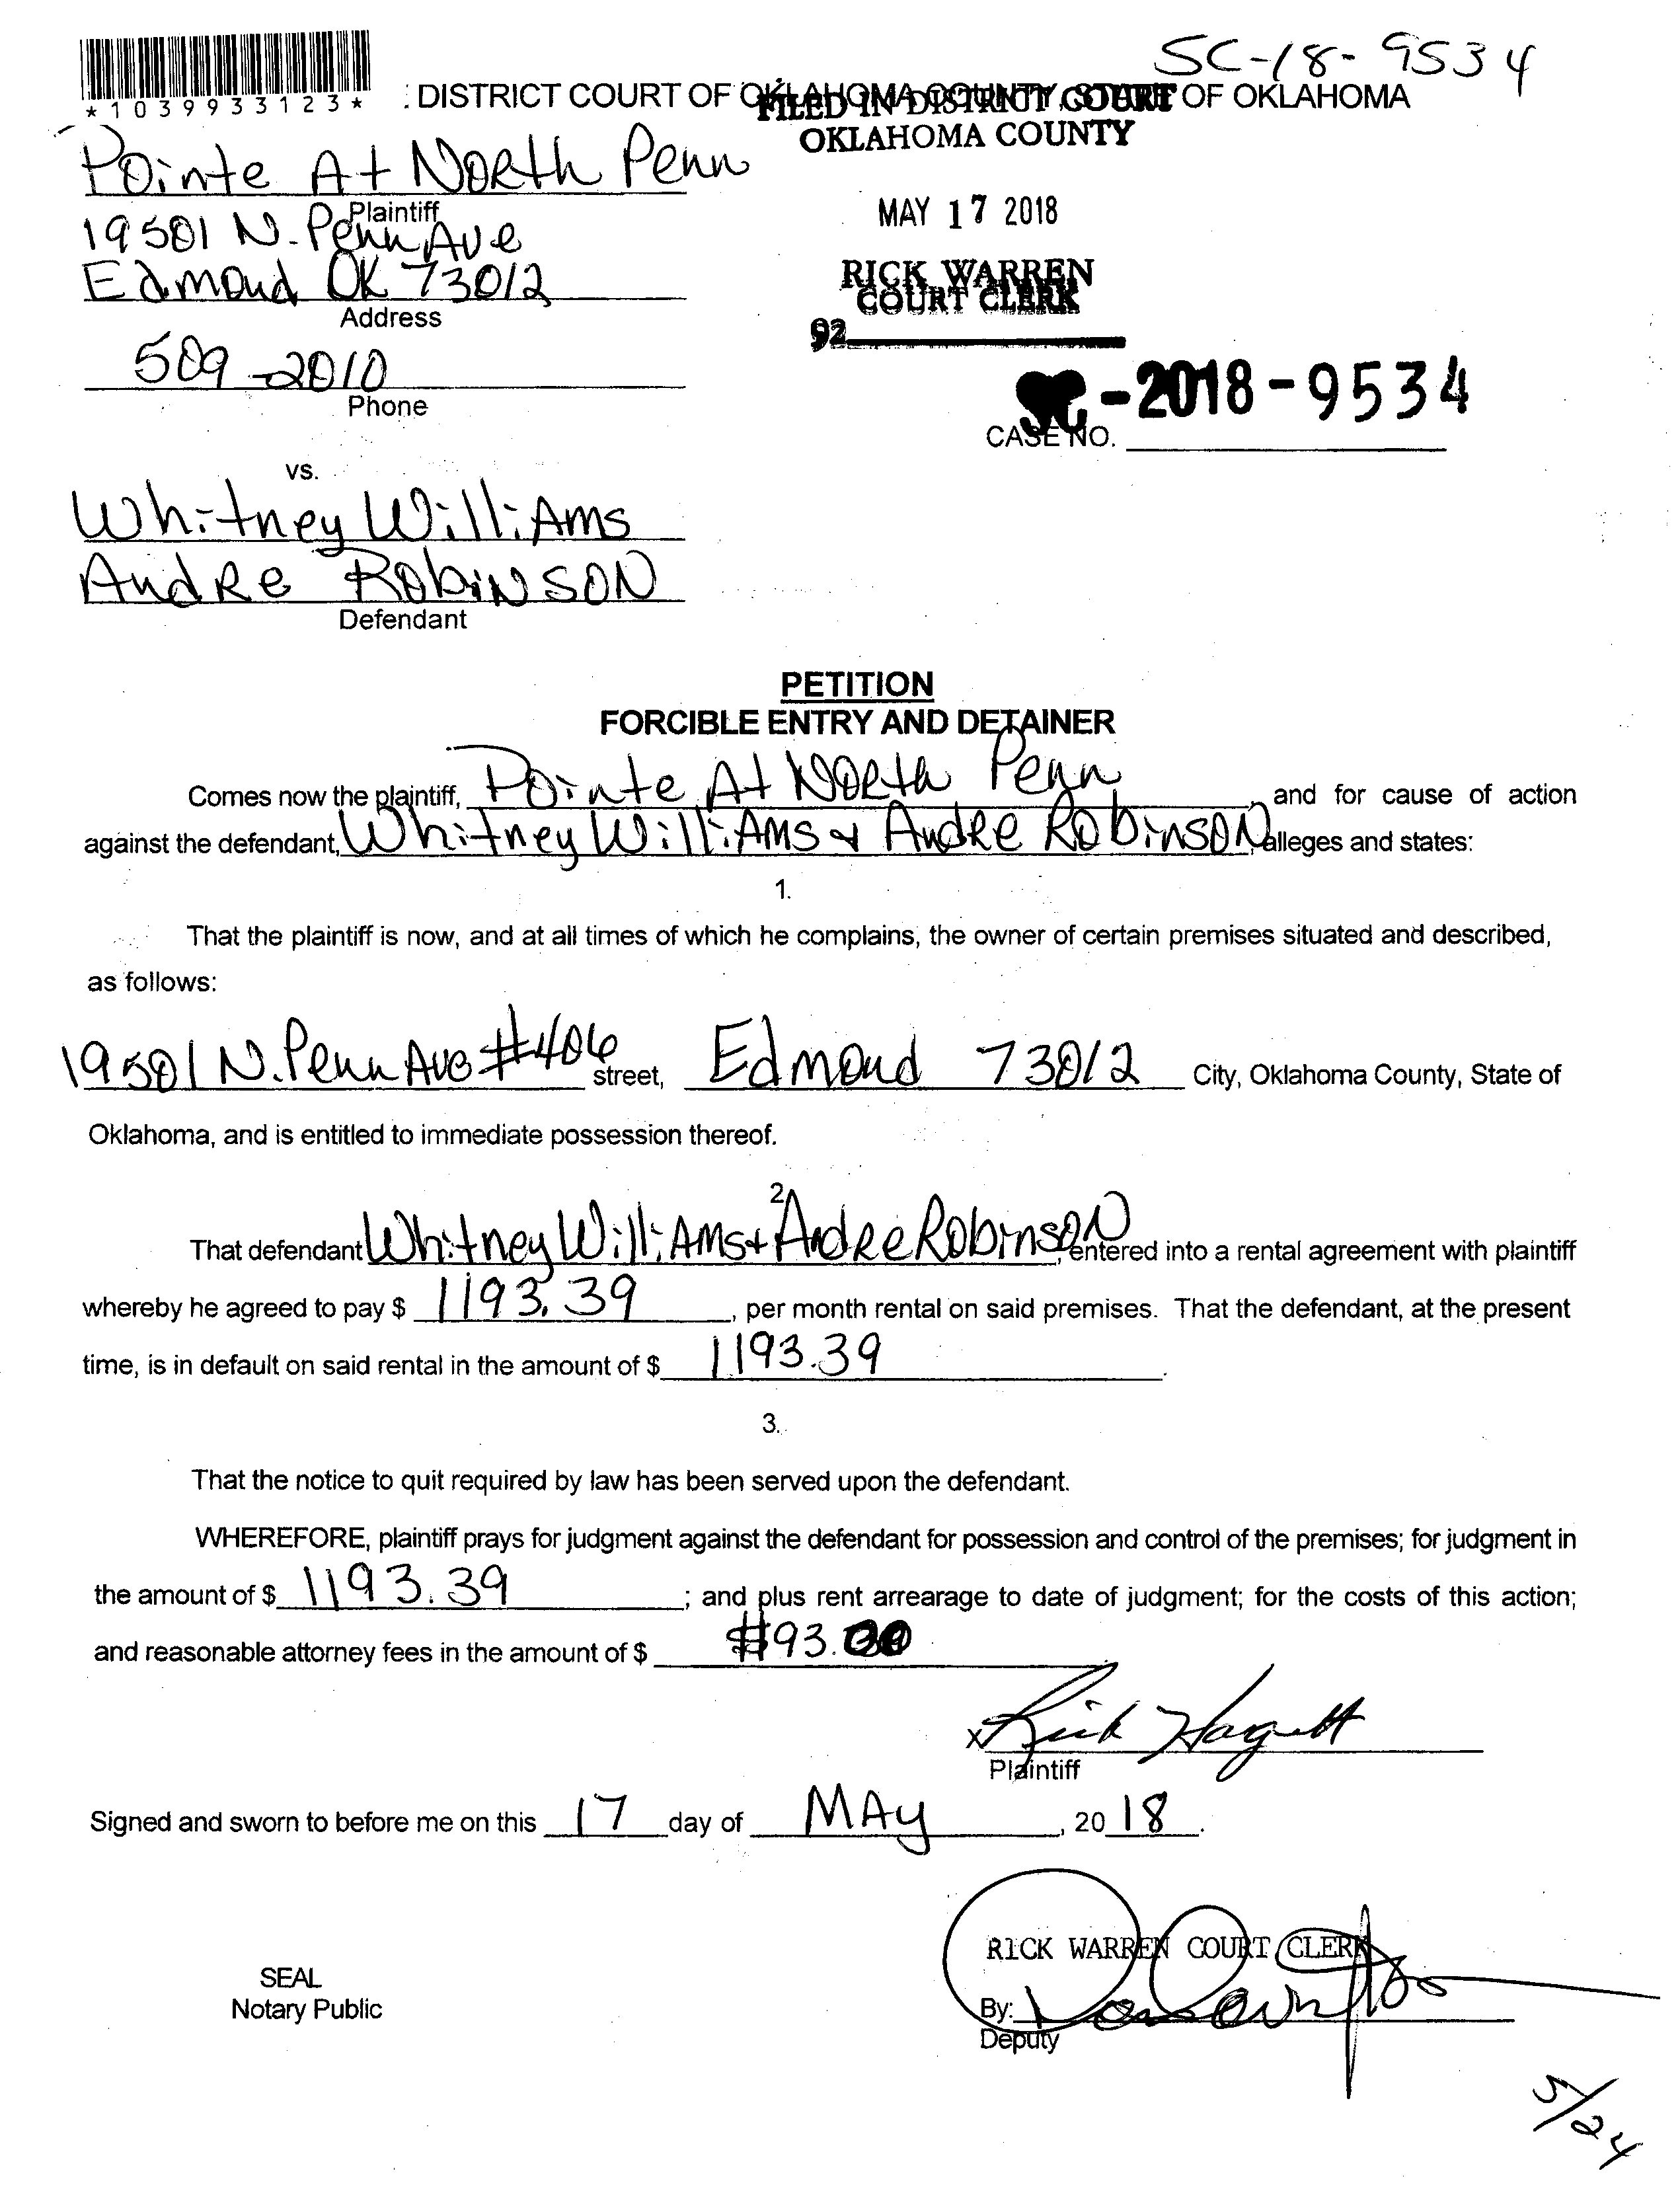 SC-18-9534
*1039933123*
: DISTRICT COURT OF OKLAHOMA COUNTY, STATE OF OKLAHOMA
FILED IN DISTRICT COURT
OKLAHOMA COUNTY
Pointe At North Penn
Plaintiff
MAY 17 2018
19501 N. Penn Ave
Edmond OK 73012
Address
RICK WARREN
COURT CLERK
92
509-2010
Phone
SC-2018-9534
CASE NO.
vs.
Whitney Williams
Andre Robinson
Defendant
PETITION
FORCIBLE ENTRY AND DETAINER
Comes now the plaintiff, Pointe At North Penn, and for cause of action
against the defendant, Whitney Williams & Andre Robinson, alleges and states:
1.
That the plaintiff is now, and at all times of which he complains, the owner of certain premises situated and described,
as follows:
19501 N. Penn Ave #406 street, Edmond 73012 City, Oklahoma County, State of
Oklahoma, and is entitled to immediate possession thereof.
2.
That defendant Whitney Williams & Andre Robinson, entered into a rental agreement with plaintiff
whereby he agreed to pay $ 1193.39, per month rental on said premises. That the defendant, at the present
time, is in default on said rental in the amount of $ 1193.39.
3.
That the notice to quit required by law has been served upon the defendant.
WHEREFORE, plaintiff prays for judgment against the defendant for possession and control of the premises; for judgment in
the amount of $ 1193.39; and plus rent arrearage to date of judgment; for the costs of this action;
and reasonable attorney fees in the amount of $ $93.00
x Rick Hagutt
Plaintiff
Signed and sworn to before me on this 17 day of MAy, 20 18.
RICK WARREN COURT CLERK
SEAL
Notary Public
By:
Deputy
5/24